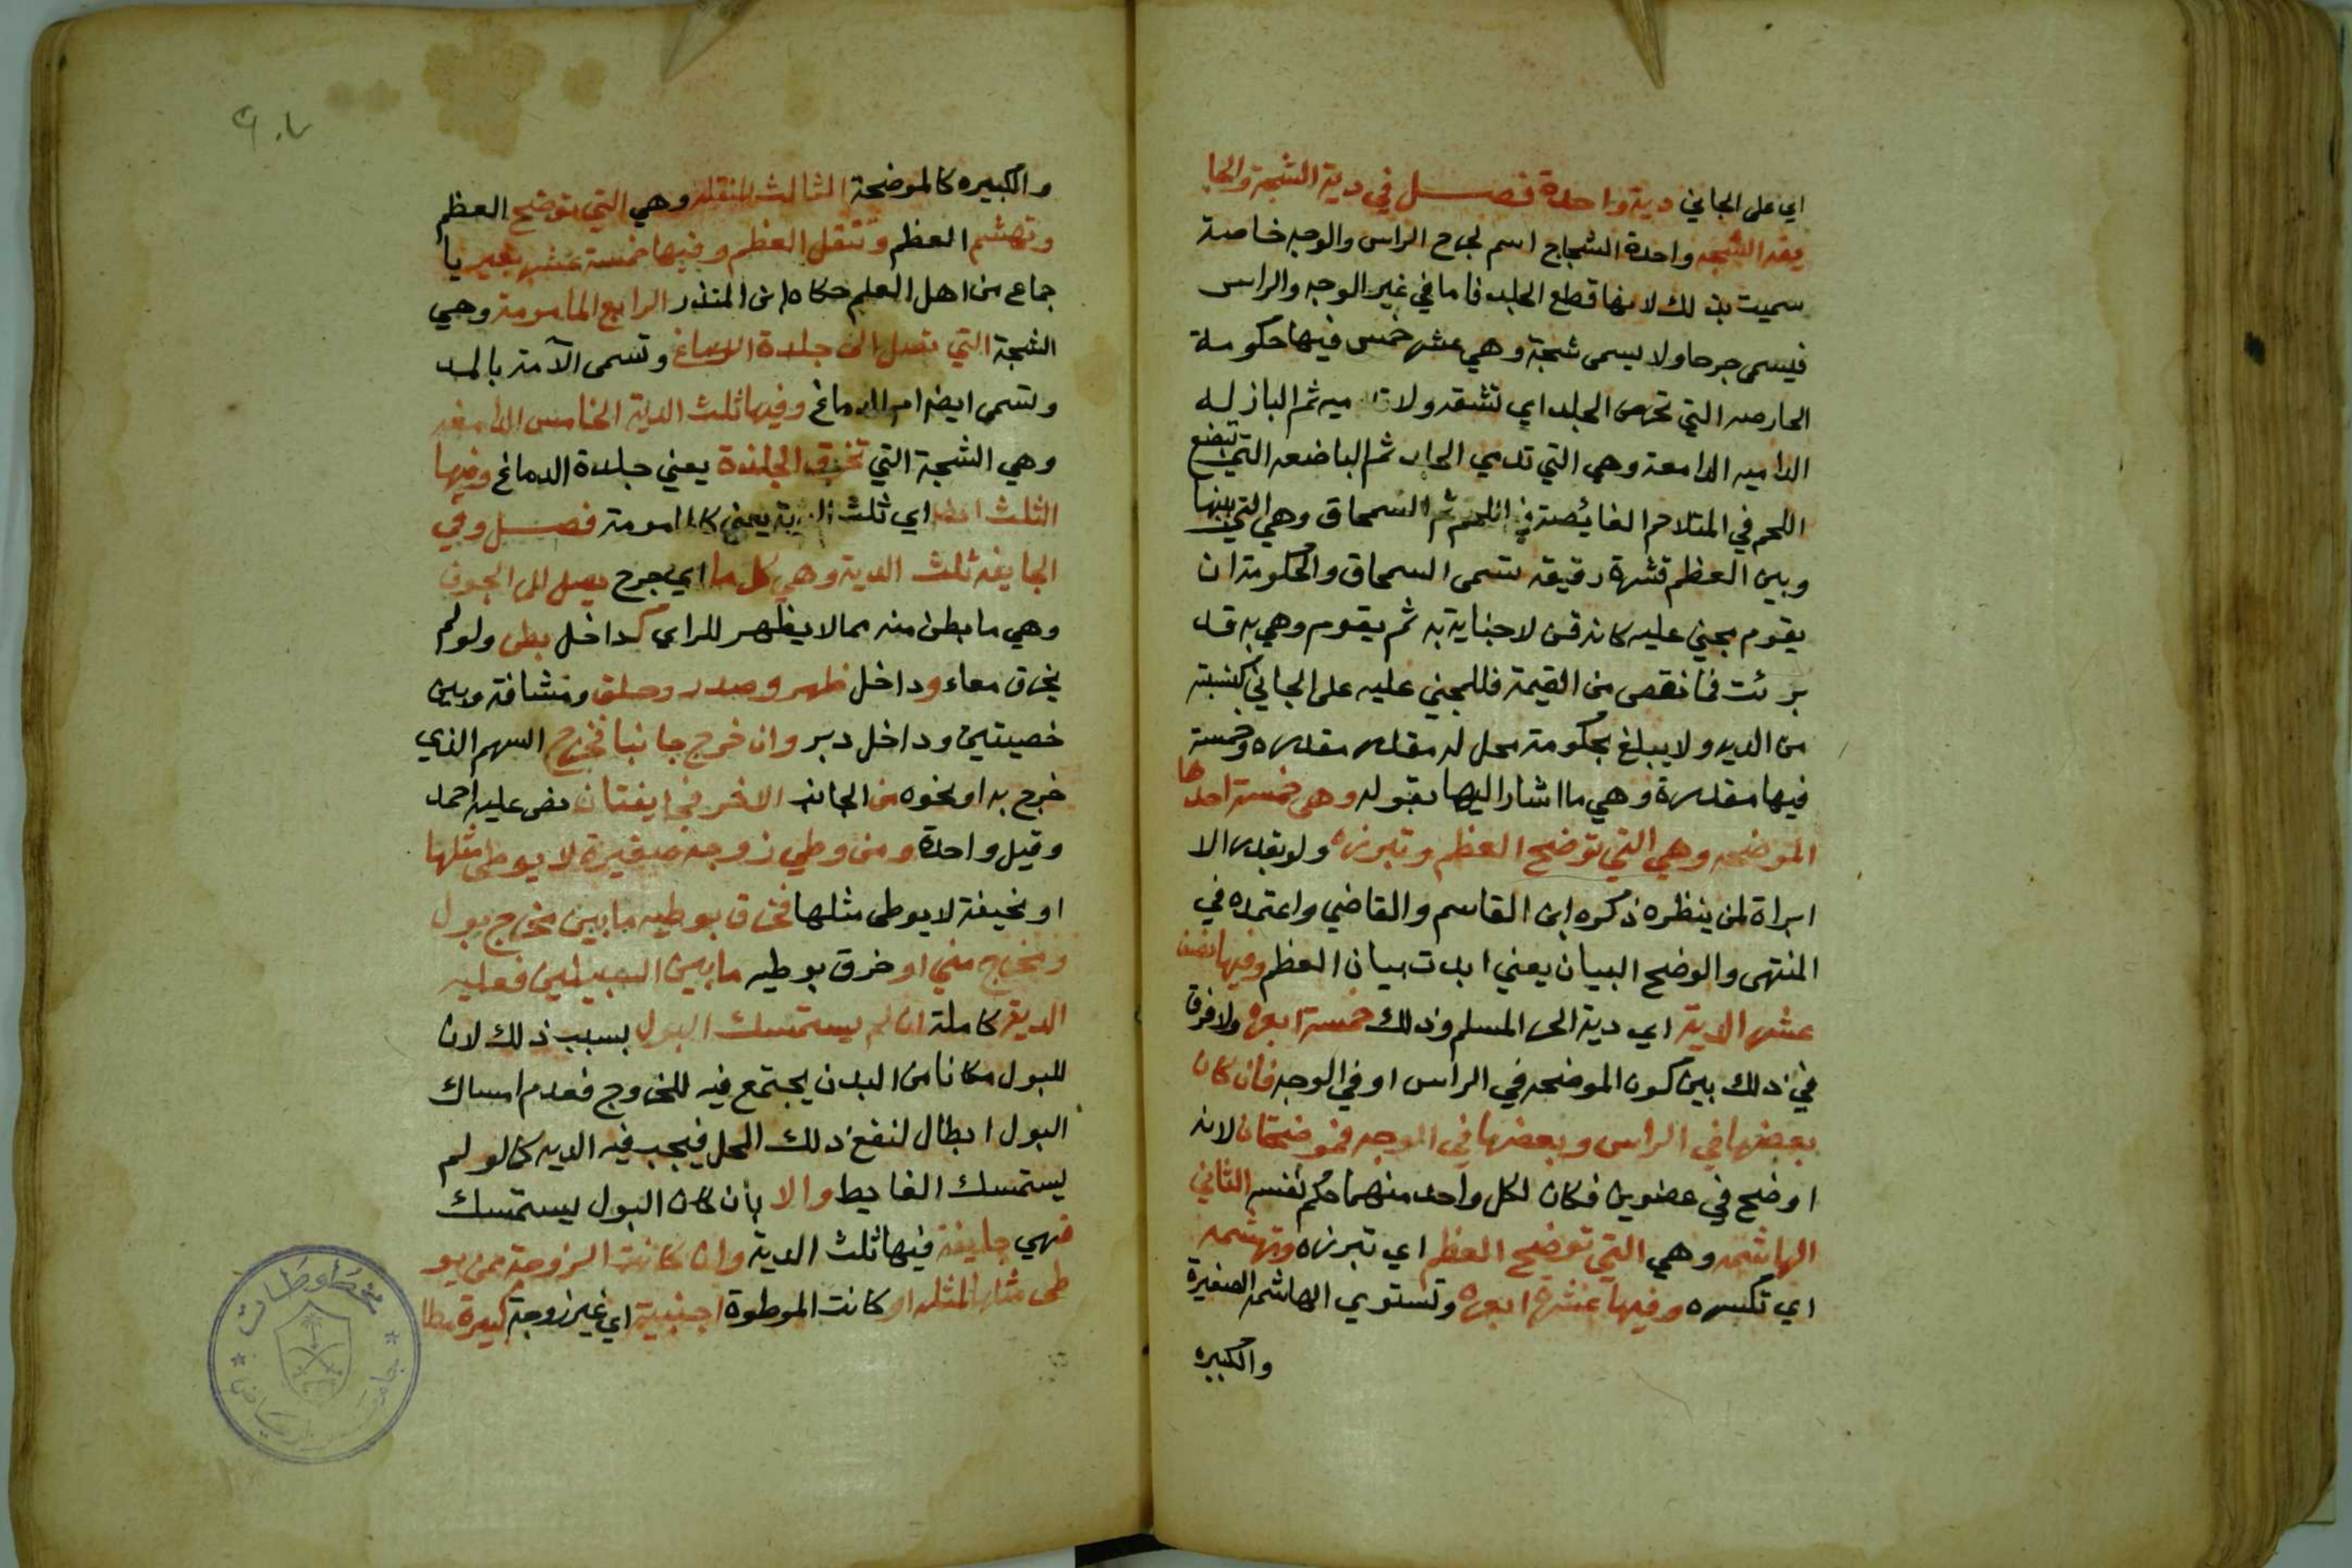 اي على الجاني دية واحدة فصل في دية الشجة والجا
يفة الشجه واحدة الشجاج اسم لجرح الراس والوجه خاصة
سميت بذلك لانها قطع الجلد فاما في غير الوجه والراس
فيسمى جرحا ولا يسمى شجة وهي عشر خمس فيها حكومة
الحارصه التي تحرص الجلد اي تشقه ولا تدميه ثم البازله
الداميه الدامعة وهي التي تدمي الجلد ثم الباضعه التي تبضع
اللحم في المتلاحم الغايصة في اللحم ثم السمحاق وهي التي بينها
وبين العظم قشرة رقيقه تسمى السمحاق والحكومة ان
يقوم مجني عليه كانه قن لا جناية به ثم يقوم وهي به قد
برئت فما نقص من القيمة فللمجني عليه على الجاني كنسبته
من الديه ولا يبلغ بحكومة محل له مقدر مقدره وخمسة
فيها مقدرة وهي ما اشار اليها بقوله وهي خمسة احدها
الموضحه وهي التي توضح العظم وتبرزه ولو بقدر الا
ابراة لمن ينظره ذكره ابن القاسم والقاضي واعتمده في
المنتهى والوضح البيان يعني ابدت بيان العظم وفيها نصف
عشر الدية اي دية الحر المسلم وذلك خمسة ابعره ولا فرق
في ذلك بين كون الموضحه في الراس او في الوجه فان كان
بعضها في الراس وبعضها في الوجه فموضحتان لانه
اوضح في عضوين فكان لكل واحد منهما حكم نفسه الثاني
الهاشمه وهي التي توضح العظم اي تبرزه وتهشمه
اي تكسره وفيها عشرة ابعره وتستوي الهاشمه الصغيرة
والكبيره
٢٠٧
والكبيره كالموضحة الثالث المنقله وهي التي توضح العظم
وتهشم العظم وتنقل العظم وفيها خمسة عشر بعير با
جماع من اهل العلم حكاه ابن المنذر الرابع المامومة وهي
الشجة التي تصل الى جلدة الدماغ وتسمى الآمة بالمد
وتسمى ايضا ام الدماغ وفيها ثلث الدية الخامس الدامغه
وهي الشجة التي تخرق الجلدة يعني جلدة الدماغ وفيها
الثلث ايضا اي ثلث الدية يعني كالمامومة فصل وفي
الجايفه ثلث الدية وهي كل ما اي جرح يصل الى الجوف
وهي ما بطن منه مما لا يظهر للراى كداخل بطن ولو لم
يخرق معاء وداخل ظهر وصدر وحلق ومثانة وبين
خصيتين وداخل دبر وان خرج جانبا فخرج السهم الذي
خرج به او نحوه من الجانب الاخر فجايفتان نص عليه احمد
وقيل واحدة ومن وطي زوجه صغيرة لا يوطى مثلها
او نحيفة لا يوطى مثلها فخرق بوطيه ما بين مخرج بول
ومخرج مني او خرق بوطيه ما بين السبيلين فعليه
الدية كاملة ان لم يستمسك البول بسبب ذلك لان
للبول مكانا من البدن يجتمع فيه للخروج فعدم امساك
البول ابطال لنفع ذلك المحل فيجب فيه الديه كما لو لم
يستمسك الغايط والا بأن كان البول يستمسك
فهي جايفة فيها ثلث الدية وان كانت الزوجة ممن يو
طى مثلها لمثله او كانت الموطوة اجنبية اي غير زوجة كبيرة مطا
مخطوطات
جامعة الرياض